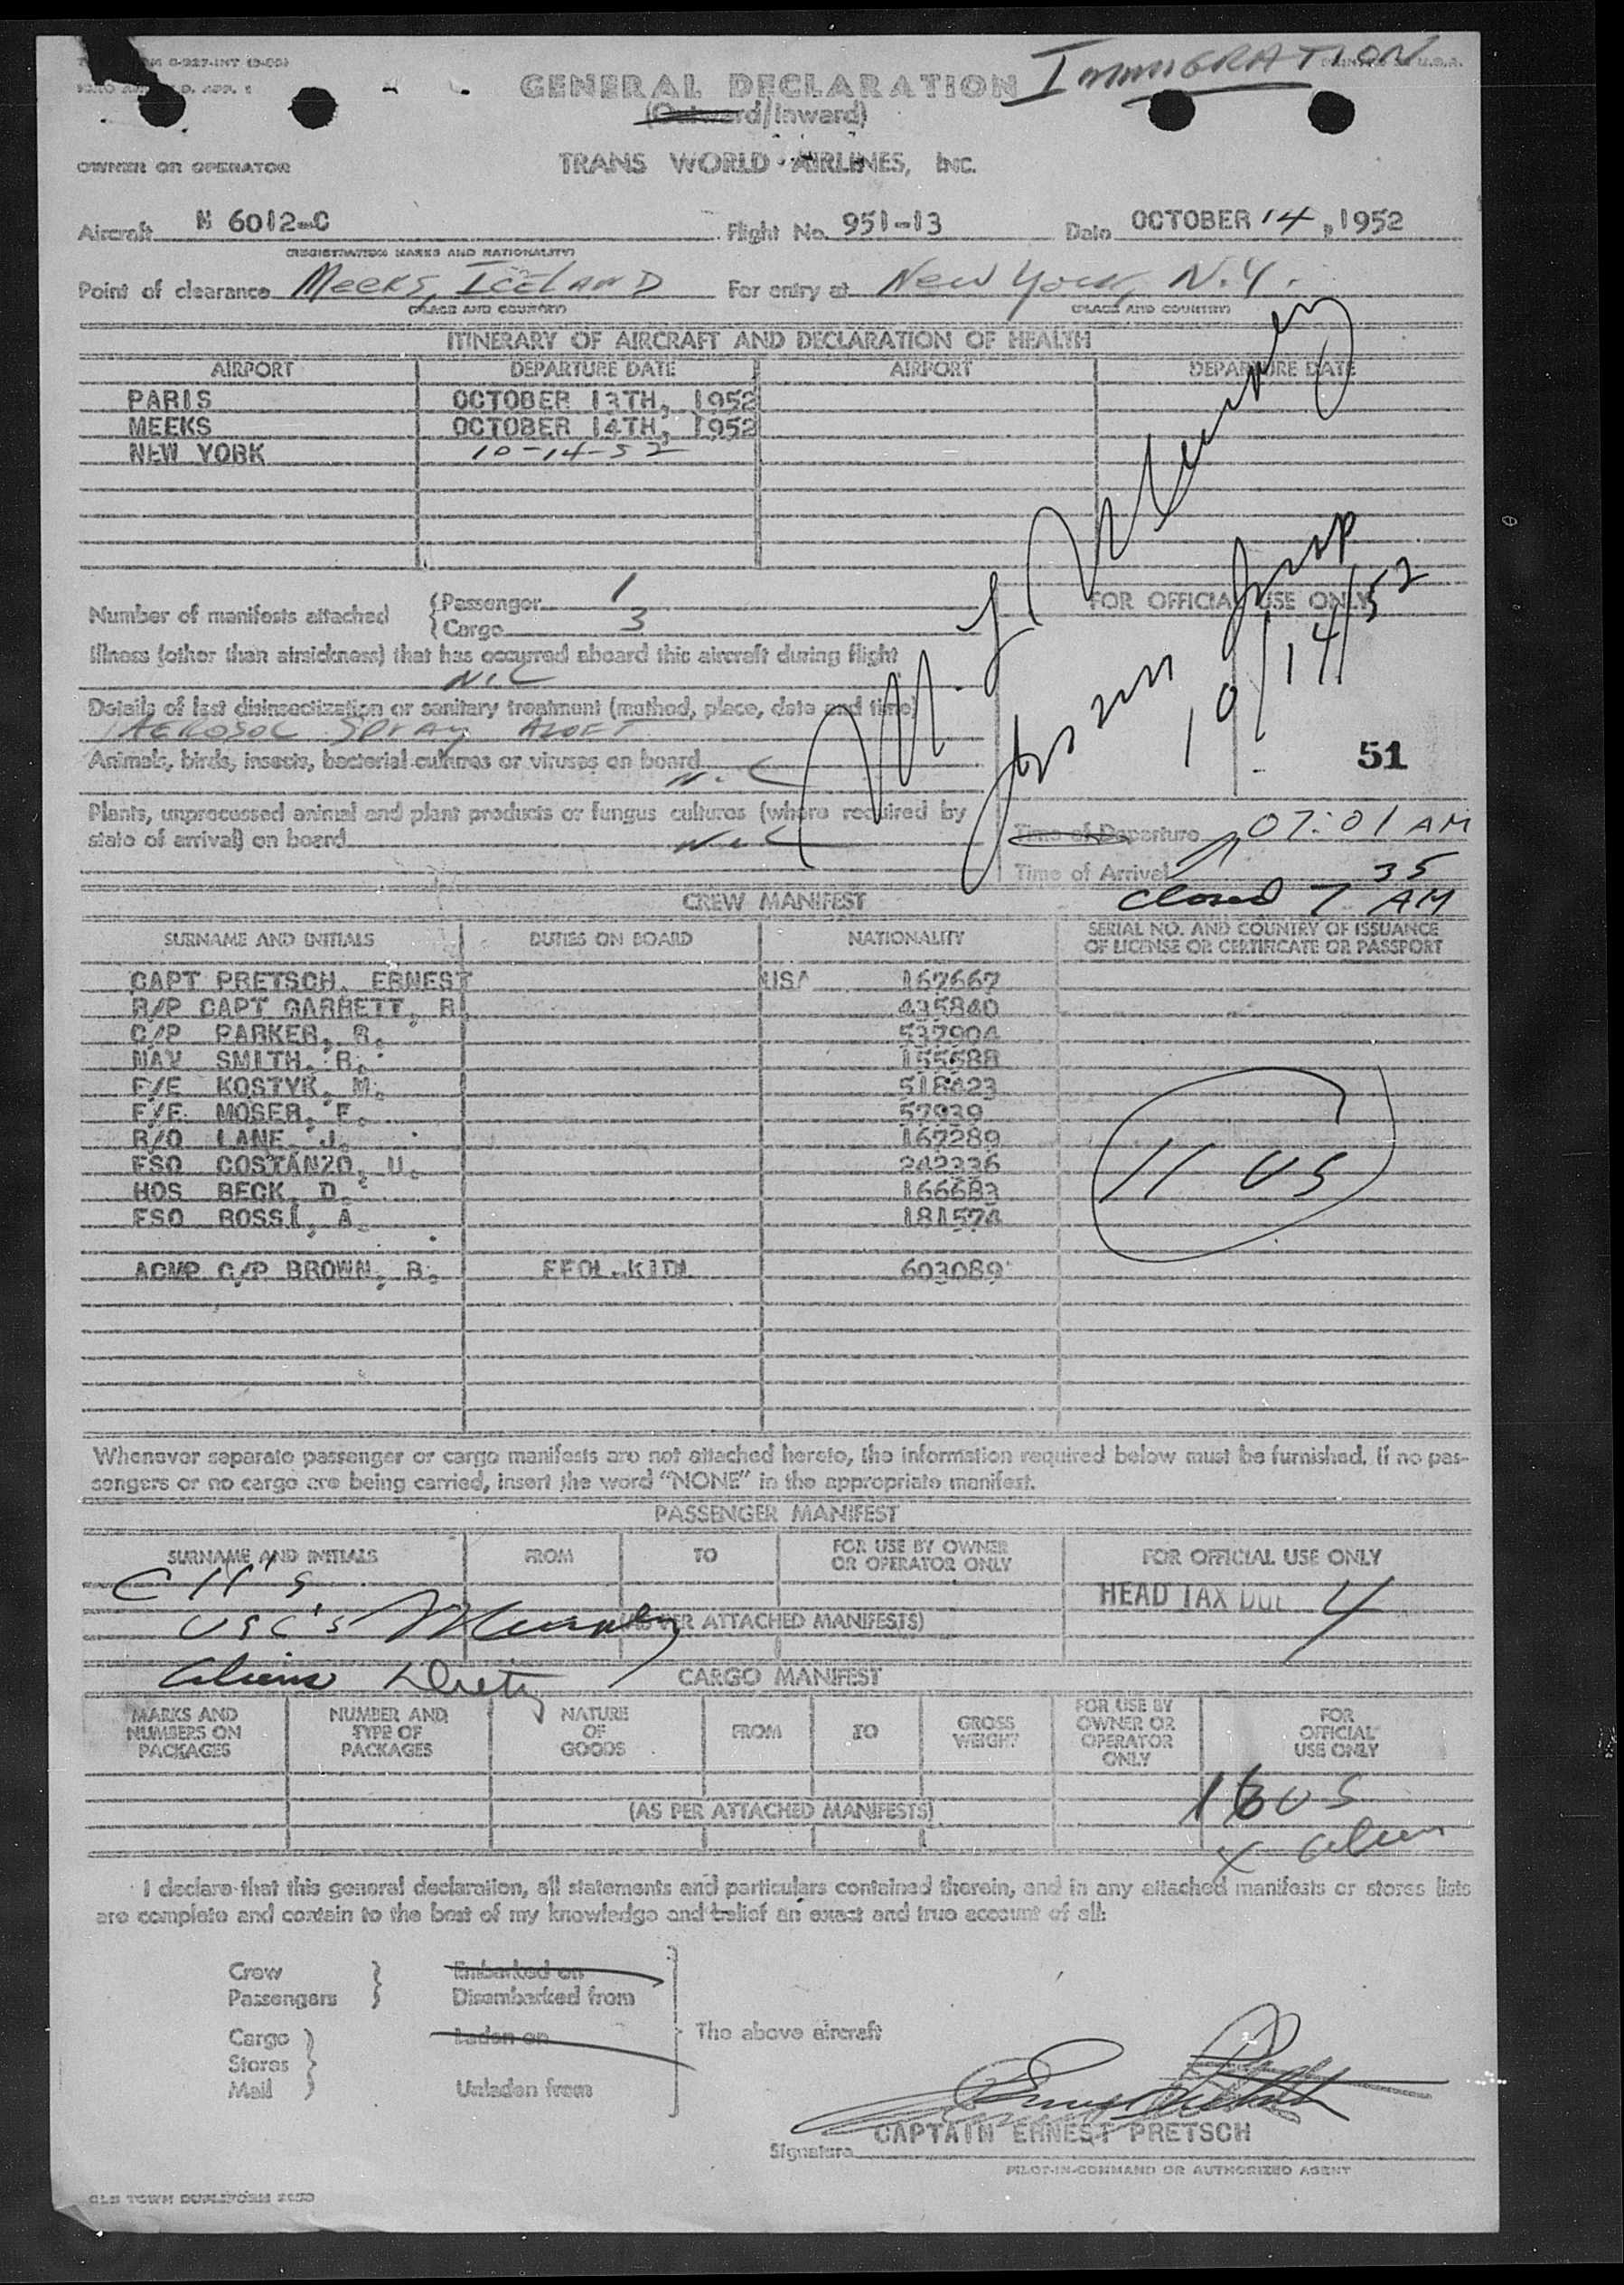 IMMIGRATION
GENERAL DECLARATION
(Outward/Inward)
OWNER OR OPERATOR TRANS WORLD AIRLINES, INC.
Aircraft N 6012-C Flight No. 951-13 Date OCTOBER 14, 1952
(REGISTRATION MARKS AND NATIONALITY)
Point of clearance Meeks, Iceland For entry at New York, N.Y.
(PLACE AND COUNTRY) (PLACE AND COUNTRY)
ITINERARY OF AIRCRAFT AND DECLARATION OF HEALTH
AIRPORT DEPARTURE DATE AIRPORT DEPARTURE DATE
PARIS OCTOBER 13TH, 1952
MEEKS OCTOBER 14TH, 1952
NEW YORK 10-14-52
Number of manifests attached { Passenger 1
Cargo 3
FOR OFFICIAL USE ONLY
Illness (other than airsickness) that has occurred aboard this aircraft during flight
Nil
Details of last disinsectization or sanitary treatment (method, place, date and time)
Aerosol Spray Aloft
10/14/52
Animals, birds, insects, bacterial cultures or viruses on board Nil
51
Plants, unprocessed animal and plant products or fungus cultures (where required by
state of arrival) on board Nil
Time of Departure 07:01 AM
Time of Arrival
closed 7 35 AM
CREW MANIFEST
SURNAME AND INITIALS DUTIES ON BOARD NATIONALITY SERIAL NO. AND COUNTRY OF ISSUANCE
OF LICENSE OR CERTIFICATE OR PASSPORT
CAPT PRETSCH, ERNEST USA 167667
R/P CAPT GARRETT, R. 435840
C/P PARKER, R. 537904
NAV SMITH, R. 155588
F/E KOSTYK, M. 518423
F/E MOSER, F. 57939
R/O LANE, J. 167289
FSO COSTANZO, U. 242336
HOS BECK, D. 166683
FSO ROSSI, A. 181574
11 US
ACMP C/P BROWN, B. FFOL.KIDL 603089
Whenever separate passenger or cargo manifests are not attached hereto, the information required below must be furnished. If no pas-
sengers or no cargo are being carried, insert the word "NONE" in the appropriate manifest.
PASSENGER MANIFEST
SURNAME AND INITIALS FROM TO FOR USE BY OWNER
OR OPERATOR ONLY FOR OFFICIAL USE ONLY
HEAD TAX DUE 4
USC's (AS PER ATTACHED MANIFESTS)
Aliens
CARGO MANIFEST
MARKS AND
NUMBERS ON
PACKAGES NUMBER AND
TYPE OF
PACKAGES NATURE
OF
GOODS FROM TO GROSS
WEIGHT FOR USE BY
OWNER OR
OPERATOR
ONLY FOR
OFFICIAL
USE ONLY
(AS PER ATTACHED MANIFESTS)
16 US
alien
I declare that this general declaration, all statements and particulars contained therein, and in any attached manifests or stores lists
are complete and contain to the best of my knowledge and belief an exact and true account of all:
Crew
Passengers } Embarked on
Disembarked from
Cargo
Stores
Mail } Laden on
Unladen from
The above aircraft
Ernest Pretsch
CAPTAIN ERNEST PRETSCH
Signature
PILOT-IN-COMMAND OR AUTHORIZED AGENT